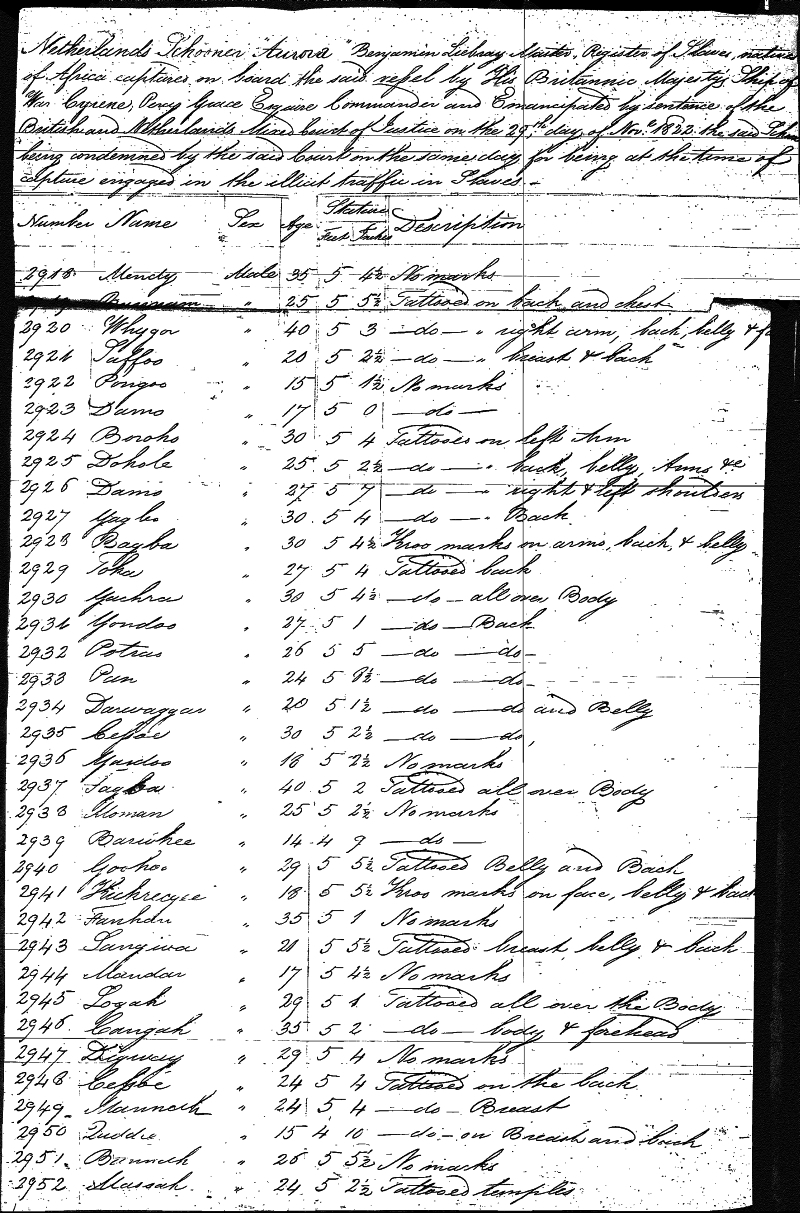 Netherlands Schooner "Aurora" Benjamin Liebray Master, Register of Slaves, natives
of Africa captured on board the said vessel by His Britannic Majesty's Ship of
War Cyrene, Percy Grace Esquire Commander and Emancipated by sentence of the
British and Netherlands Mixed Court of Justice on the 29th day of Novr 1822 the said Scho
being condemned by the said Court on the same day for being at the time of
capture engaged in the illicit traffic in Slaves.
Number Name Sex Age Stature Description
Feet Inches
2918 Mendy Male 35 5 4½ No marks
25 5 5½ Tattooed on back and chest
2920 Whygor " 40 5 3 —do— " right arm, back, belly &
2921 Saffoo " 20 5 2½ —do— " breast & back
2922 Pongoo " 15 5 1½ No marks
2923 Damo " 17 5 0 —do—
2924 Boroho " 30 5 4 Tattooes on left Arm
2925 Dohole " 25 5 2½ —do— " back, belly, Arms &c
2926 Damo " 27 5 7 —do— " right & left shoulders
2927 Yagbo " 30 5 4 —do— " Back
2928 Bagba " 30 5 4½ Kroo marks on arms, back, & belly
2929 Toka " 27 5 4 Tattooed back
2930 Yachra " 30 5 4½ —do— all over Body
2931 Yondoo " 27 5 1 —do— Back
2932 Potras " 26 5 5 —do— —do—
2933 Pan " 24 5 —do— —do—
2934 Darwaggar " 20 5 1½ —do— —do— and Belly
2935 Cessoe " 30 5 2½ —do— —do—
2936 Yaidoo " 18 5 2½ No marks
2937 Fagba " 40 5 2 Tattooed all over Body
2938 Moman " 25 5 2½ No marks
2939 Bariohee " 14 4 9 —do—
2940 Goohoo " 29 5 5½ Tattooed Belly and Back
2941 " 18 5 5½ Kroo marks on face, belly & back
2942 Fanhdu " 35 5 1 No marks
2943 Sangiwa " 21 5 5½ Tattooed breast belly & back
2944 Mandar " 17 5 4½ No marks
2945 Logah " 29 5 1 Tattooed all over the Body
2946 Cangah " 35 5 2 —do— body & forehead
2947 Digwey " 29 5 4 No marks
2948 Cessoe " 24 5 4 Tattooed on the back
2949 Manneth " 24 5 4 —do— Breast
2950 Quddie " 15 4 10 —do— on Breast and back
2951 Banneth " 26 5 5½ No marks
2952 Massah " 24 5 2½ Tattooed temples